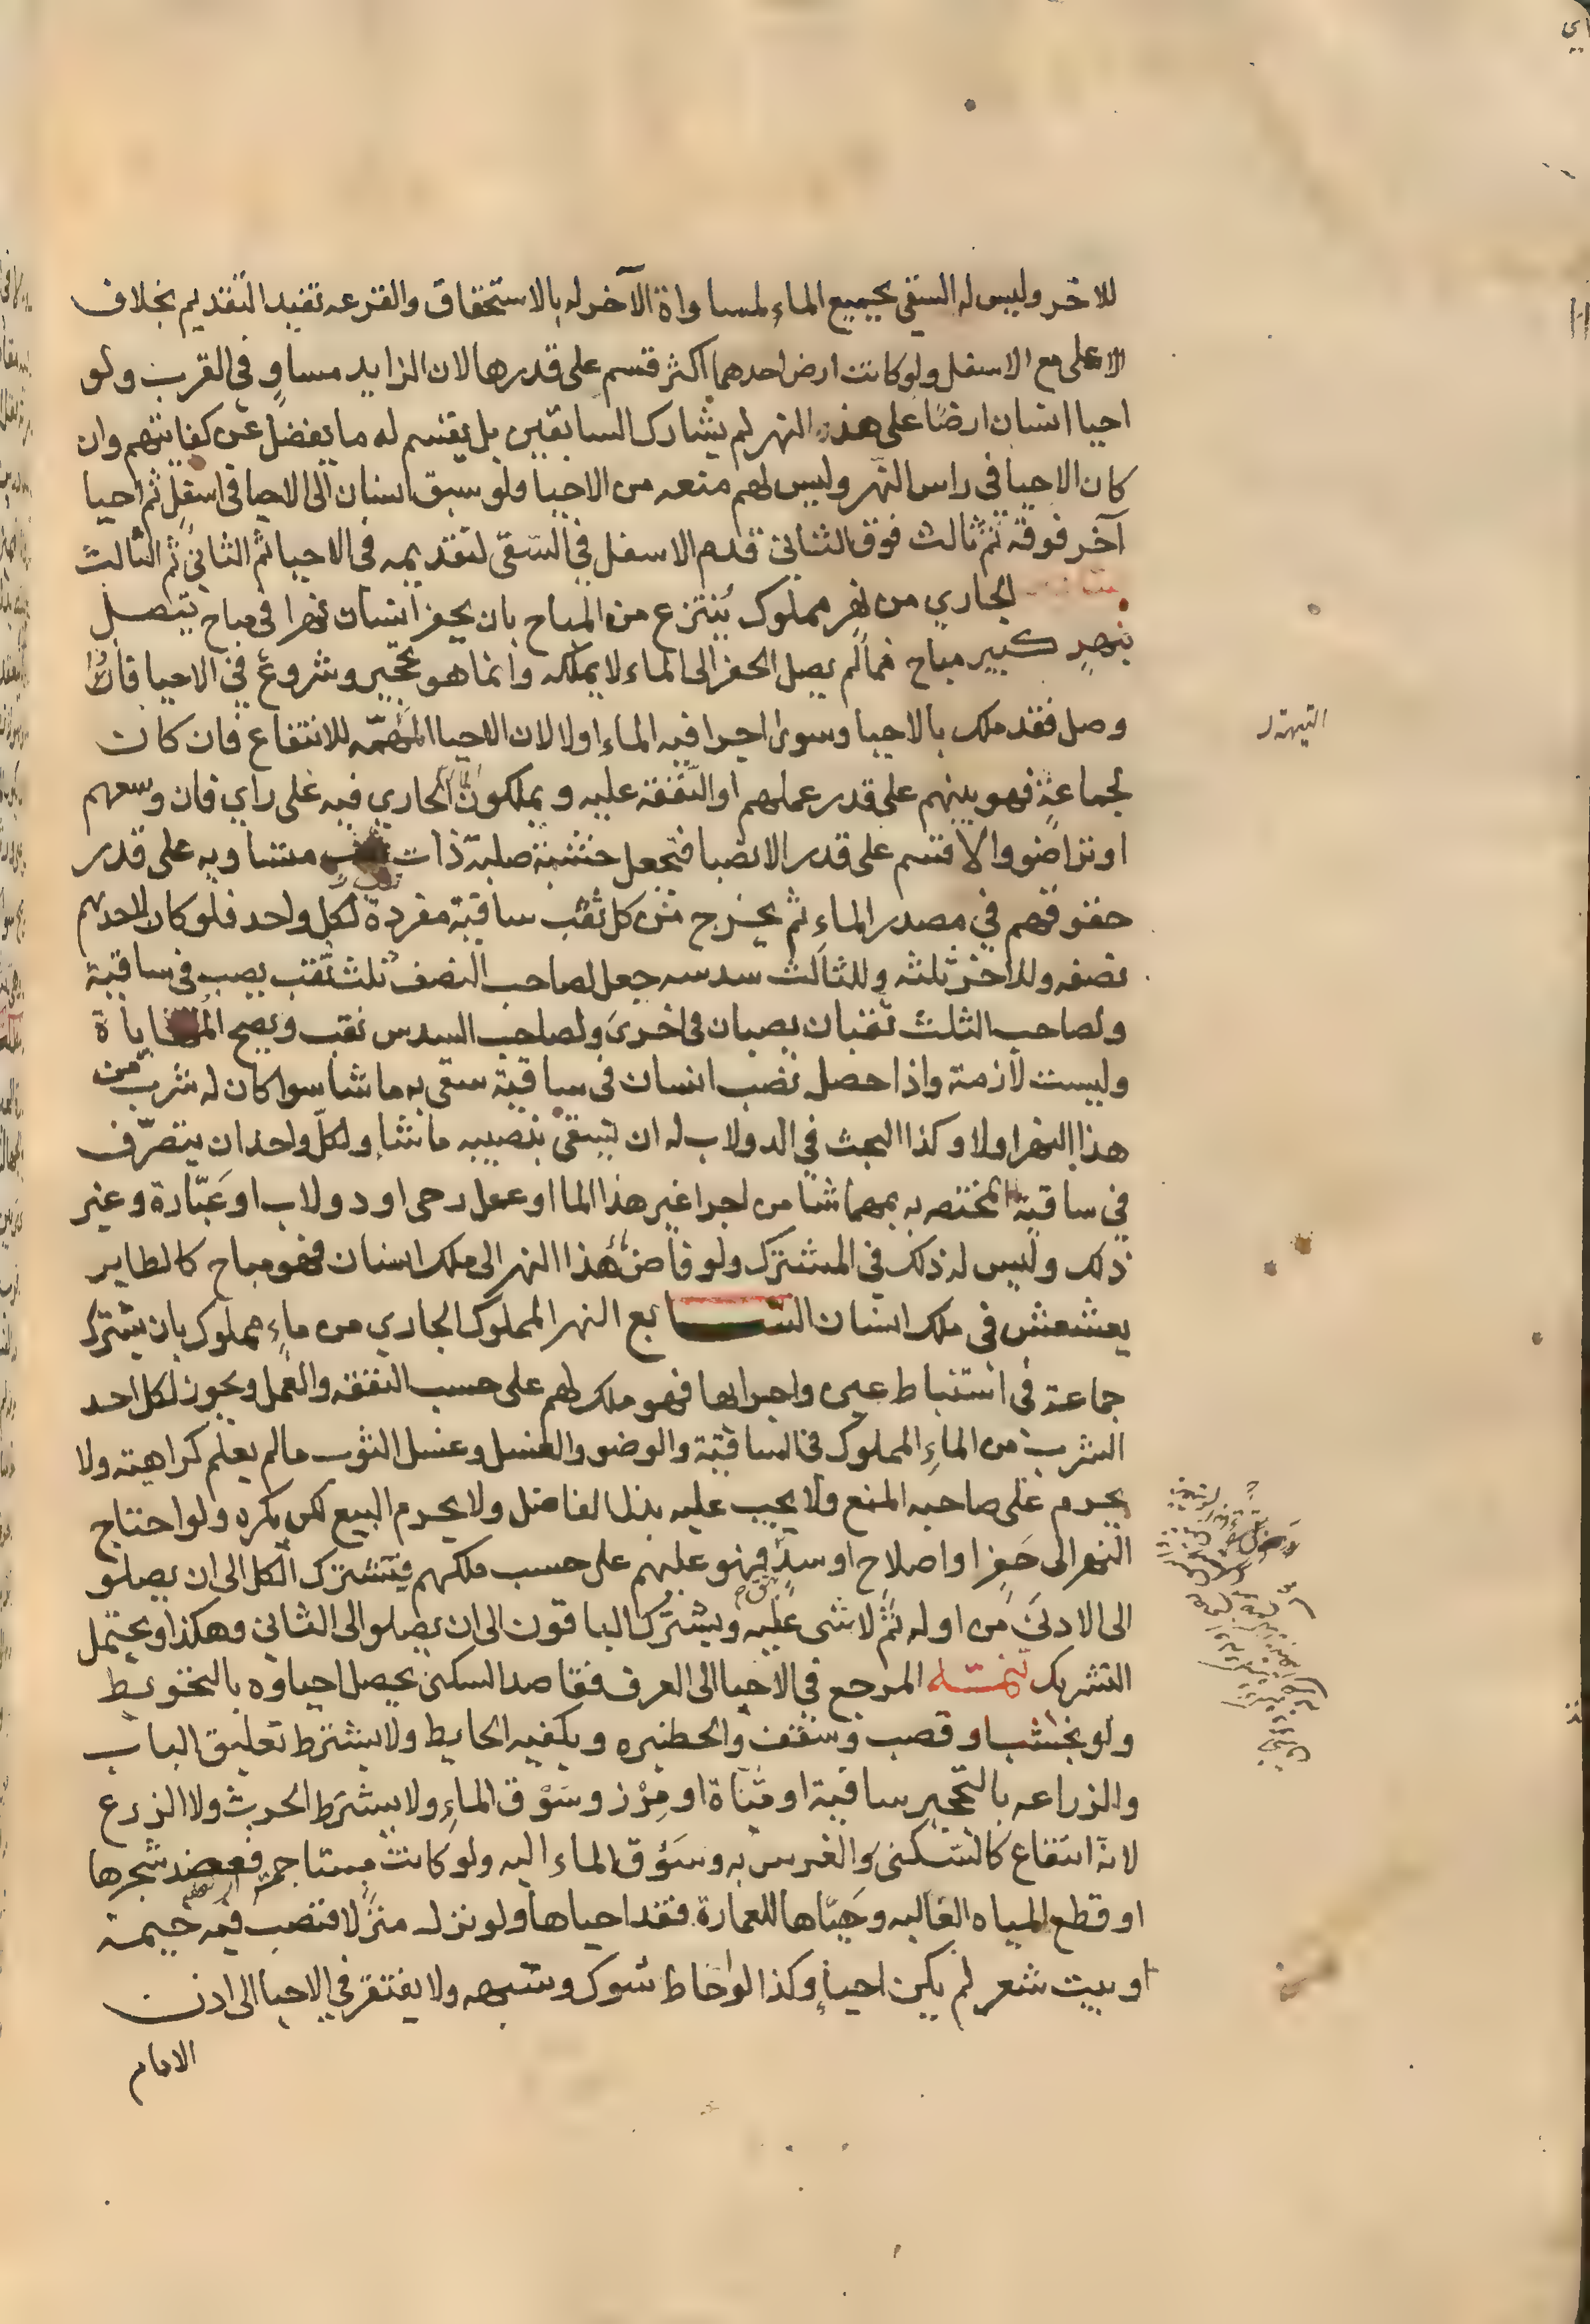 للآخر وليس له السقي بجميع الماء لمساواة الآخر له بالاستحقاق والقرعه تفيد التقديم بخلاف
الاعلى مع الاسفل ولو كانت ارض احدهما اكثر قسم على قدرها لان الزايد مساوٍ في القرب ولو
احيا انسان ارضًا على هذه النهر لم يشارك السابقين بل يقسم له ما يفضل عن كفايتهم وان
كان الاحيا في راس النهر وليس لهم منعه من الاحيا ولو سبق انسان الى الاحيا في اسفل ثم احيا
آخر فوقه ثم ثالث فوق الثاني قدم الاسفل في السقي لتقديمه في الاحيا ثم الثاني ثم الثالث
الجاري من نهر مملوك يُنتزع من المباح بان يحفر انسان نهرا في مباح يتصل
بنهرٍ كبير مباح فما لم يصل الحفر الى الماء لا يملكه وانما هو تحجير وشروع في الاحيا فان
وصل فقد ملك بالاحيا وسوى اجرا فيه الماء اولا لان الاحيا التهيئه للانتفاع فان كان
لجماعةٍ فهو بينهم على قدر عملهم او النفقة عليه ويملكون الماء الجاري فيه على راي فان وسعهم
او تراضوا والا قسم على قدر الانصبا فتجعل خشبة صلبة ذات ثقب متساويه على قدر
حقوقهم في مصدر الماء ثم يخرج من كل ثقب ساقية مفردة لكل واحد فلو كان لاحدهم
نصفه وللآخر ثلثه وللثالث سدسه جعل لصاحب النصف ثلث ثقب يصب في ساقية
ولصاحب الثلث ثقبان يصبان في اخرى ولصاحب السدس ثقب ويصح المهاياة
وليست لازمة واذا حصل نصيب انسان في ساقية سقى به ما شا سوا كان له شرب من
هذا النهر اولا وكذا البحث في الدولاب له ان يسقي بنصيبه ما شاء ولكلّ واحد ان يتصرّف
في ساقيته المختصه به بمهما شا من اجرا غير هذا الما او عمل رحى او دولاب او عَبّارة وغير
ذلك وليس له ذلك في المشترك ولو فاض ماء هذا النهر الى ملك انسان فهو مباح كالطاير
يعشعش في ملك انسان السابع النهر المملوك الجاري من ماءٍ مملوك بان يشترك
جماعة في استنباط عين واجرايها فهو ملك لهم على حسب النفقه والعمل ويجوز لكل احد
الشرب من الماءِ المملوك في الساقية والوضو والغسل وغسل الثوب ما لم يعلم كراهيته ولا
يحرم على صاحبه المنع ولا يجب عليه بذل الفاضل ولا يحرم البيع لكن يكره ولو احتاج
النهر الى حَفرٍ او اصلاح او سدّ فهو عليهم على حسب ملكهم فيشترك الكل الى ان يصلو
الى الادنى من اوله ثم لا شى عليه ويشترك الباقون الى ان يصلوا الى الثاني وهكذا ويحتمل
التشريك تتمّه المرجع في الاحيا الى العرف فقاصد السكنى يحصل احياوه بالتحويط
ولو بخشب او قصب وسقف والحظيره ويكفيه الحايط ولا يشترط تعليق الباب
والزراعه بالتحجير بساقية او مُسَنَّاة او مِرْز وسَوْق الماءِ ولا يشترط الحرث ولا الزرع
لانه انتفاع كالسّكنى والغرس به وسَوْق الماء اليه ولو كانت مستاجمة فعضد شجرها
او قطع المياه الغالبه وهَيّاها للعمارة فقد احياها ولو نزل منزلا فنصب فيه خيمة
او بيت شعر لم يكن احياءً وكذا لو احاط شوك وشبهه ولا يفتقر في الاحيا الى اذن
الامام